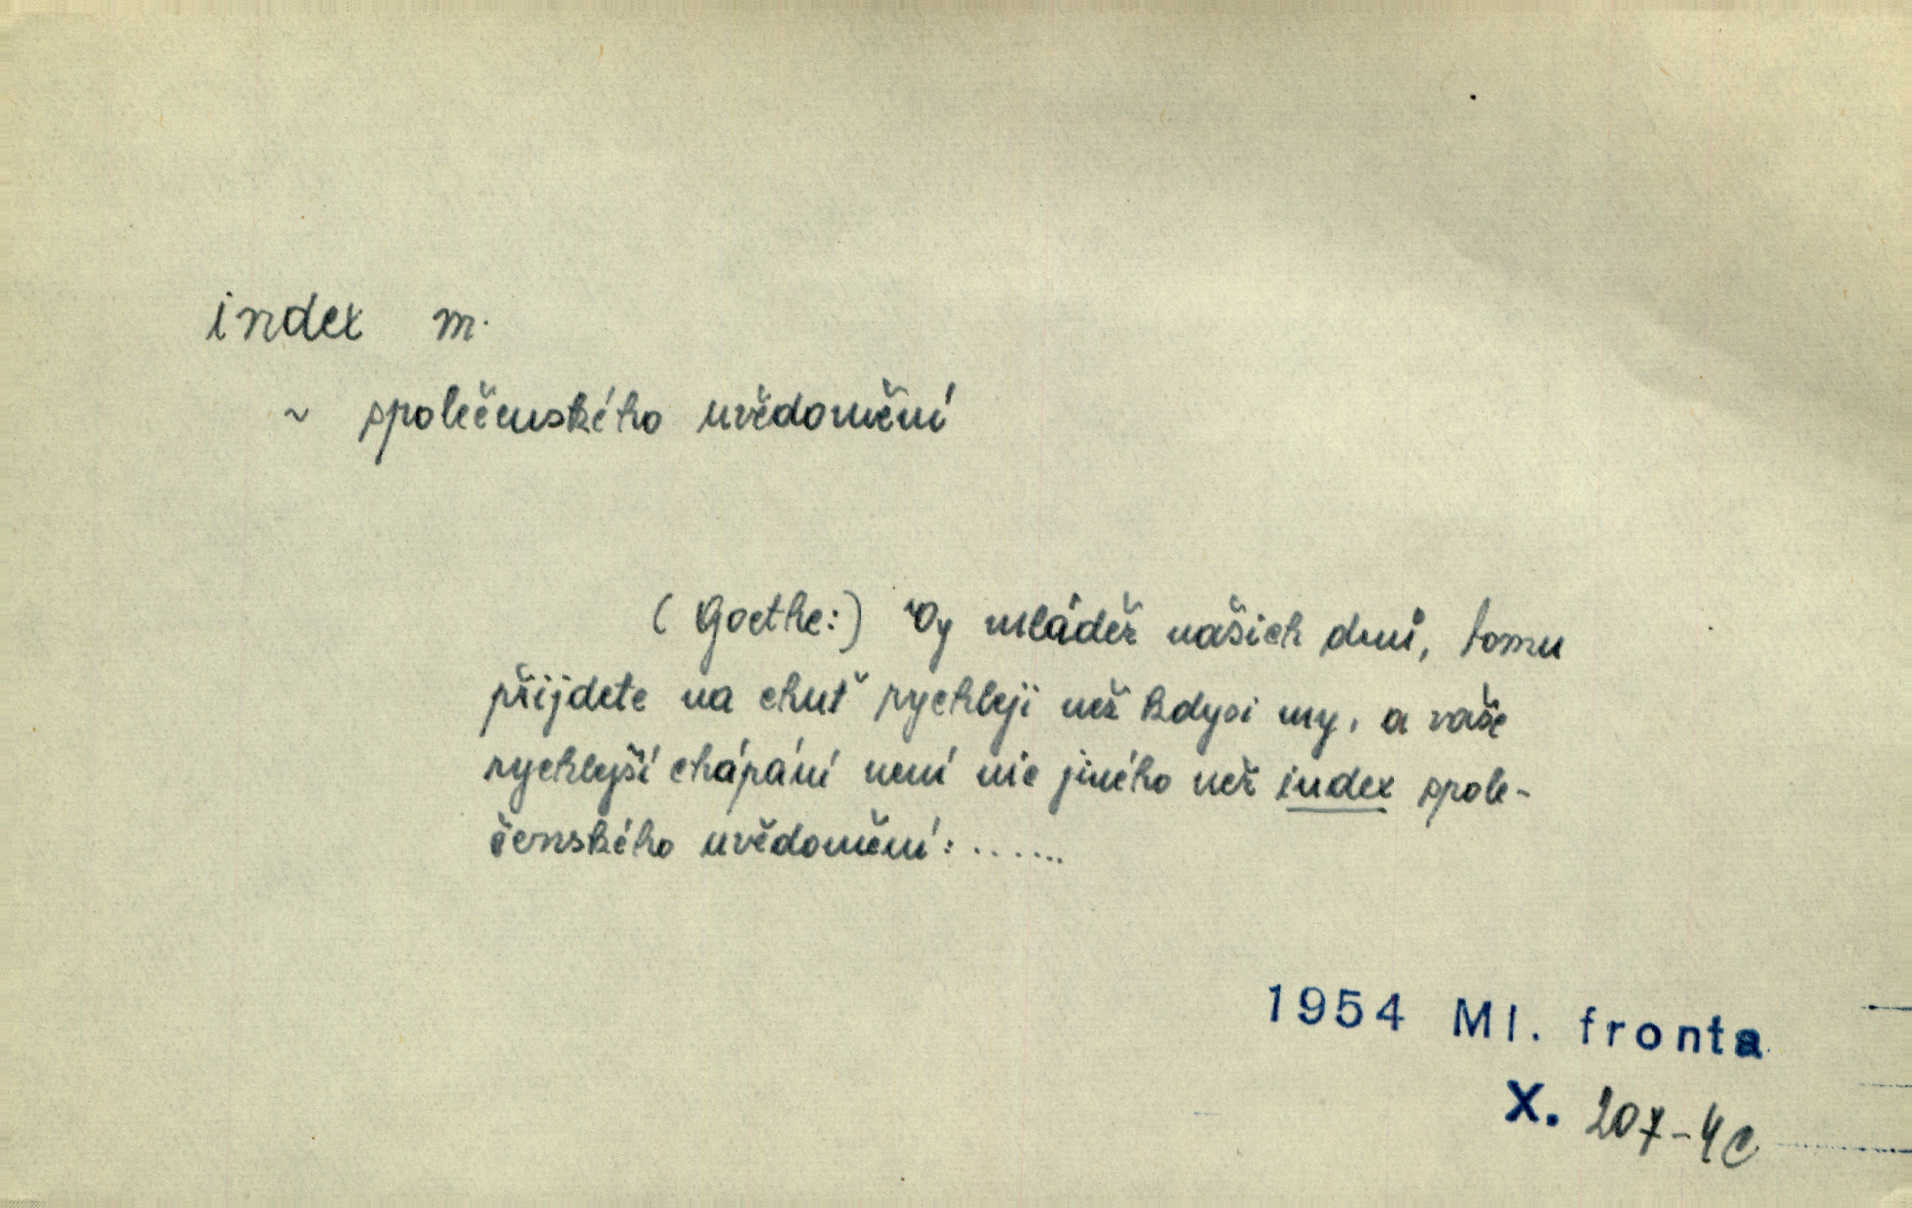 index m.
~ společenského uvědomění
(Goethe:) Vy mládež našich dnů, tomu
přijdete na chuť rychleji než kdysi my, a vaše
rychlejší chápání není nic jiného než index spole-
čenského uvědomění: ......
1954 Ml. fronta
X. 207-4c